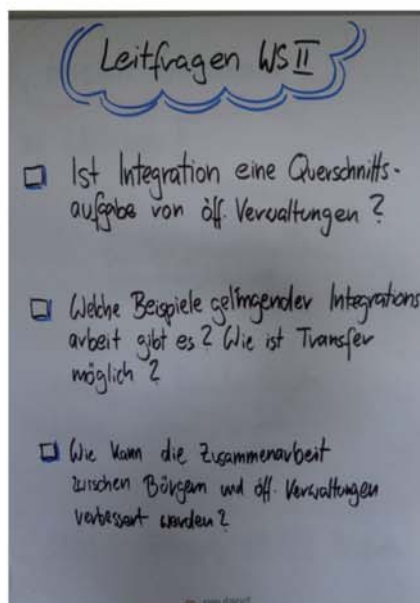 Leitfragen WS II
Ist Integration eine Querschnitts-
aufgabe von öff. Verwaltungen?
Welche Beispiele gelingender Integrations
arbeit gibt es? Wie ist Transfer
möglich?
Wie kann die Zusammenarbeit
zwischen Bürgern und öff. Verwaltungen
verbessert werden?